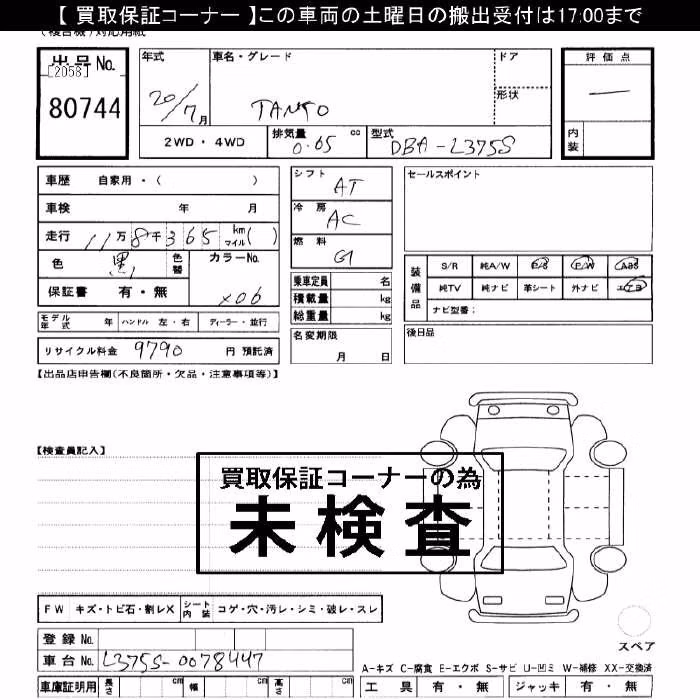 【 買取保証コーナー 】この車両の土曜日の搬出受付は17:00まで
出品No.
[2058]
80744
年式 20/7月
車名・グレード TANTO
ドア
形状
評価点 —
内装
2WD・4WD
排気量 0.65 cc
型式 DBA-L375S
車歴 自家用・( )
車検 年 月
走行 11万8千365 km マイル( )
色 黒 色替
カラーNo. X06
保証書 有・無
シフト AT
冷房 AC
燃料 G
乗車定員 名
積載量 kg
総重量 kg
セールスポイント
装備品
S/R 純A/W P/S P/W ABS
純TV 純ナビ 革シート 外ナビ エアB
ナビ型番:
モデル年式 年 ハンドル 左・右 ディーラー・並行
名変期限 月 日
後日品
リサイクル料金 9790 円 預託済
【出品店申告欄(不良箇所・欠品・注意事項等)】
【検査員記入】
買取保証コーナーの為
未検査
FW キズ・トビ石・割レX シート内装 コゲ・穴・汚レ・シミ・破レ・スレ
登録No.
車台No. L375S-0078447
スペア
A-キズ C-腐食 E-エクボ S-サビ U-凹ミ W-補修 XX-交換済
車庫証明用 長さ cm 幅 cm 高さ cm
工具 有・無 ジャッキ 有・無